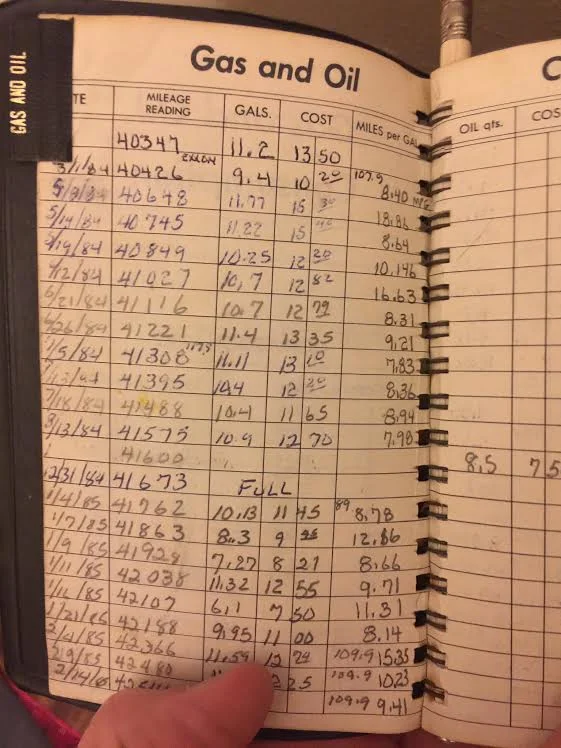 GAS AND OIL
Gas and Oil
TE MILEAGE READING GALS. COST MILES per GAL OIL qts. COS
40347 11.2 13 50
3/1/84 40426 EXXON 9.4 10 20 107.9 8.40 MPG
40648 11.77 15 18.86
5/14/84 40745 11.22 15 8.64
5/19/84 40849 10.25 12 20 10.146
/12/84 41027 10.7 12 82 16.63
6/21/84 41116 10.7 12 79 8.31
6/26/84 41221 11.4 13 35 9.21
/5/84 41308 11.11 13 20 7.83
/13/84 41395 10.4 12 20 8.36
7/18/84 41488 10.4 11 65 8.94
8/13/84 41575 10.9 12 70 7.98
41600 8.5 7 5
12/31/84 41673 FULL
1/4/85 41762 10.13 11 45 89 8.78
1/7/85 41863 8.3 9 12.16
1/9/85 41928 7.27 8 21 8.66
1/11/85 42038 11.32 12 55 9.71
42107 6.1 7 50 11.31
1/21/85 42188 9.95 11 00 8.14
2/2/85 42366 11.59 12 79 109.9 15.35
85 42480 25 109.9 10.23
2/14/8 109.9 9.41